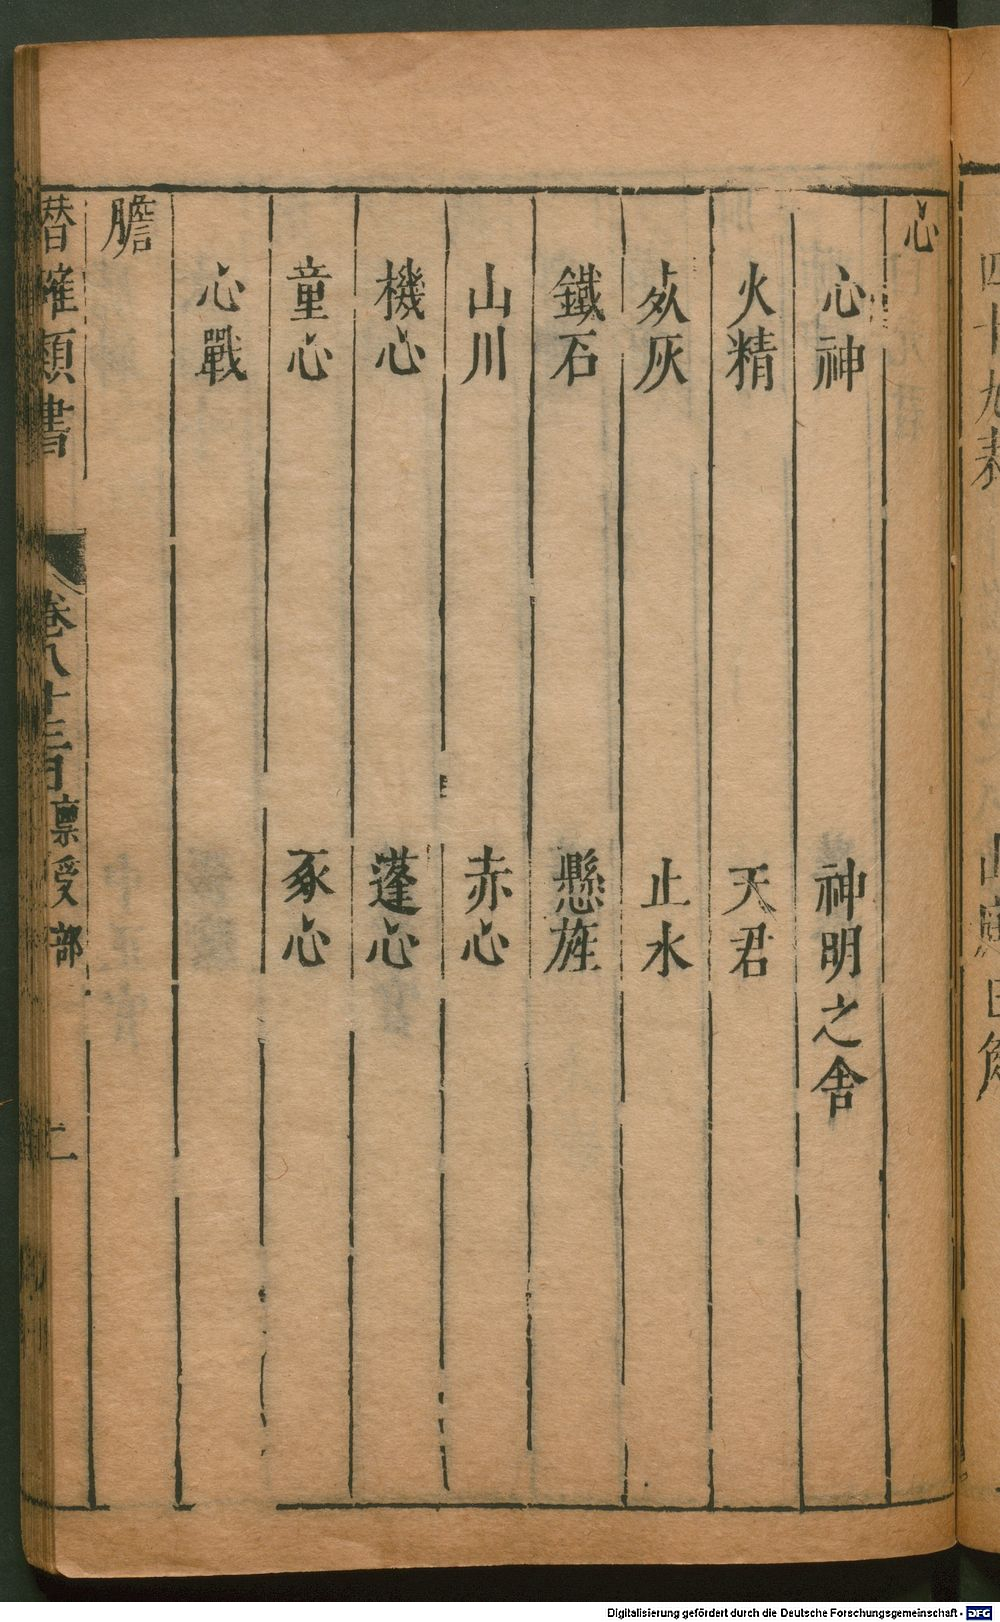 心
心神　神明之舍
火精　天君
死灰　止水
鐵石　懸旌
山川　赤心
機心　蓬心
童心　豕心
心戰
膽
潛確類書　卷八十三目　稟受部　二
Digitalisierung gefördert durch die Deutsche Forschungsgemeinschaft - DFG